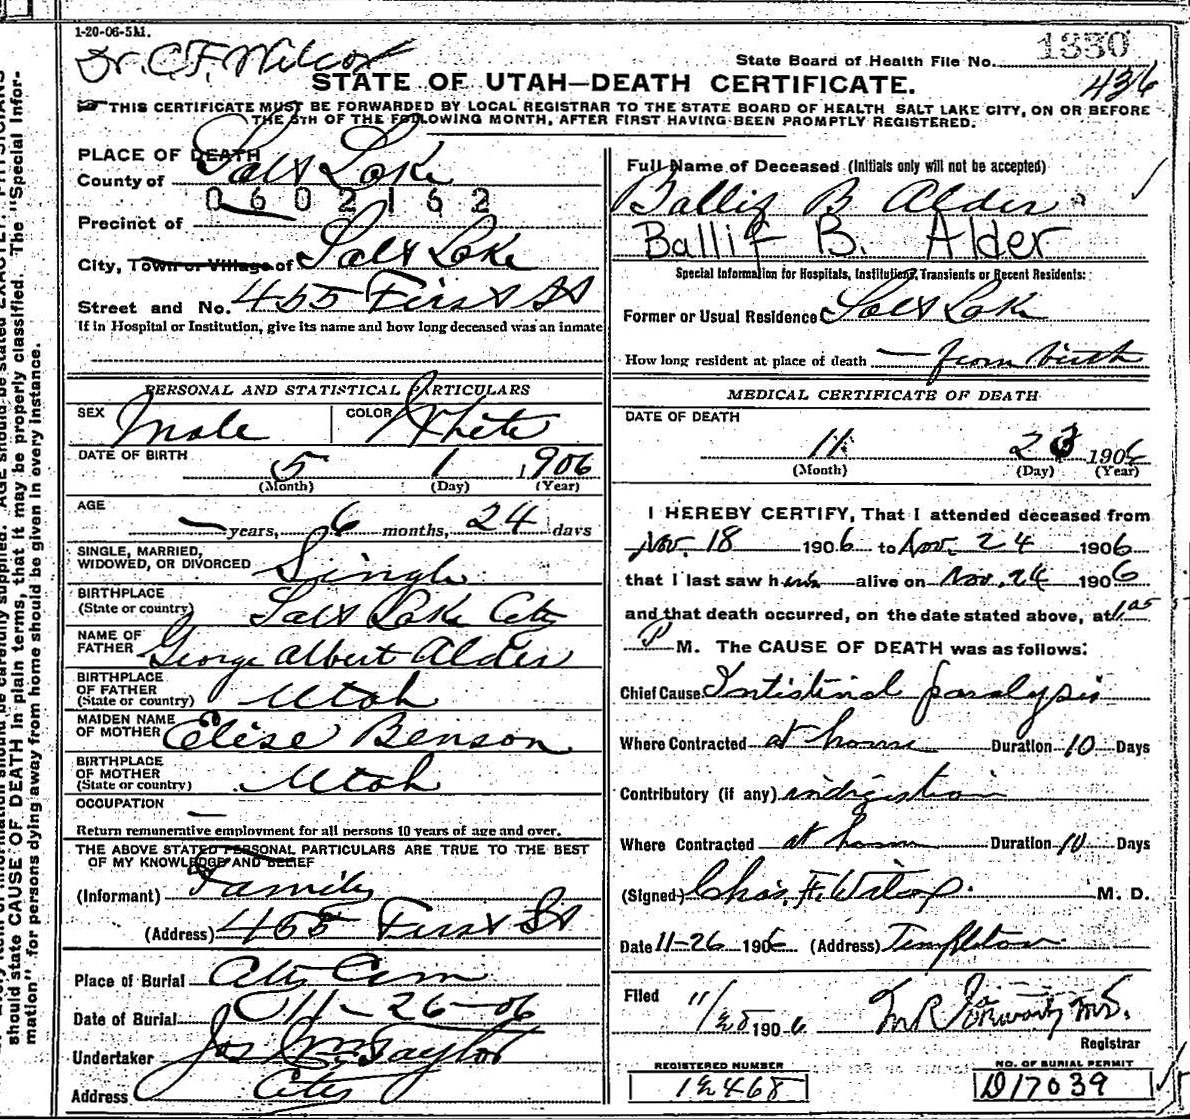 1-20-06-5M.
Dr. C.F. Wilcox
State Board of Health File No. 1330
436
STATE OF UTAH—DEATH CERTIFICATE.
THIS CERTIFICATE MUST BE FORWARDED BY LOCAL REGISTRAR TO THE STATE BOARD OF HEALTH SALT LAKE CITY, ON OR BEFORE
THE 5TH OF THE FOLLOWING MONTH, AFTER FIRST HAVING BEEN PROMPTLY REGISTERED.
PLACE OF DEATH
County of Salt Lake
0602162
Precinct of
City, Town or Village of Salt Lake
Street and No. 455 First St
If in Hospital or Institution, give its name and how long deceased was an inmate
PERSONAL AND STATISTICAL PARTICULARS
SEX Male COLOR White
DATE OF BIRTH 5 1 1906
(Month) (Day) (Year)
AGE — years, 6 months, 24 days
SINGLE, MARRIED,
WIDOWED, OR DIVORCED Single
BIRTHPLACE
(State or country) Salt Lake City
NAME OF
FATHER George Albert Alder
BIRTHPLACE
OF FATHER
(State or country) Utah
MAIDEN NAME
OF MOTHER Elise Benson
BIRTHPLACE
OF MOTHER
(State or country) Utah
OCCUPATION —
Return remunerative employment for all persons 10 years of age and over.
THE ABOVE STATED PERSONAL PARTICULARS ARE TRUE TO THE BEST
OF MY KNOWLEDGE AND BELIEF
(Informant) Family
(Address) 455 First St
Place of Burial City Cem
Date of Burial 11-26-06
Undertaker Jos Wm Taylor
Address City
Full Name of Deceased (Initials only will not be accepted)
Ballif B Alder
Ballif B. Alder
Special Information for Hospitals, Institutions, Transients or Recent Residents:
Former or Usual Residence Salt Lake
How long resident at place of death — from birth
MEDICAL CERTIFICATE OF DEATH
DATE OF DEATH
11 1906
(Month) (Day) (Year)
I HEREBY CERTIFY, That I attended deceased from
Nov. 18 1906 to Nov. 24 1906
that I last saw him alive on Nov. 24 1906
and that death occurred, on the date stated above, at 1.05
P M. The CAUSE OF DEATH was as follows:
Chief Cause Intistinal paralysis
Where Contracted at home Duration 10 Days
Contributory (if any) indigistion
Where Contracted at home Duration 10 Days
(Signed) Chas. F. Wilcox M. D.
Date 11-26 1906 (Address) Templeton
Filed 11/ 1906
Registrar
REGISTERED NUMBER
NO. OF BURIAL PERMIT
D17039
should state CAUSE OF DEATH in plain terms, that it may be properly classified. The "Special Infor-
mation" for persons dying away from home should be given in every instance.